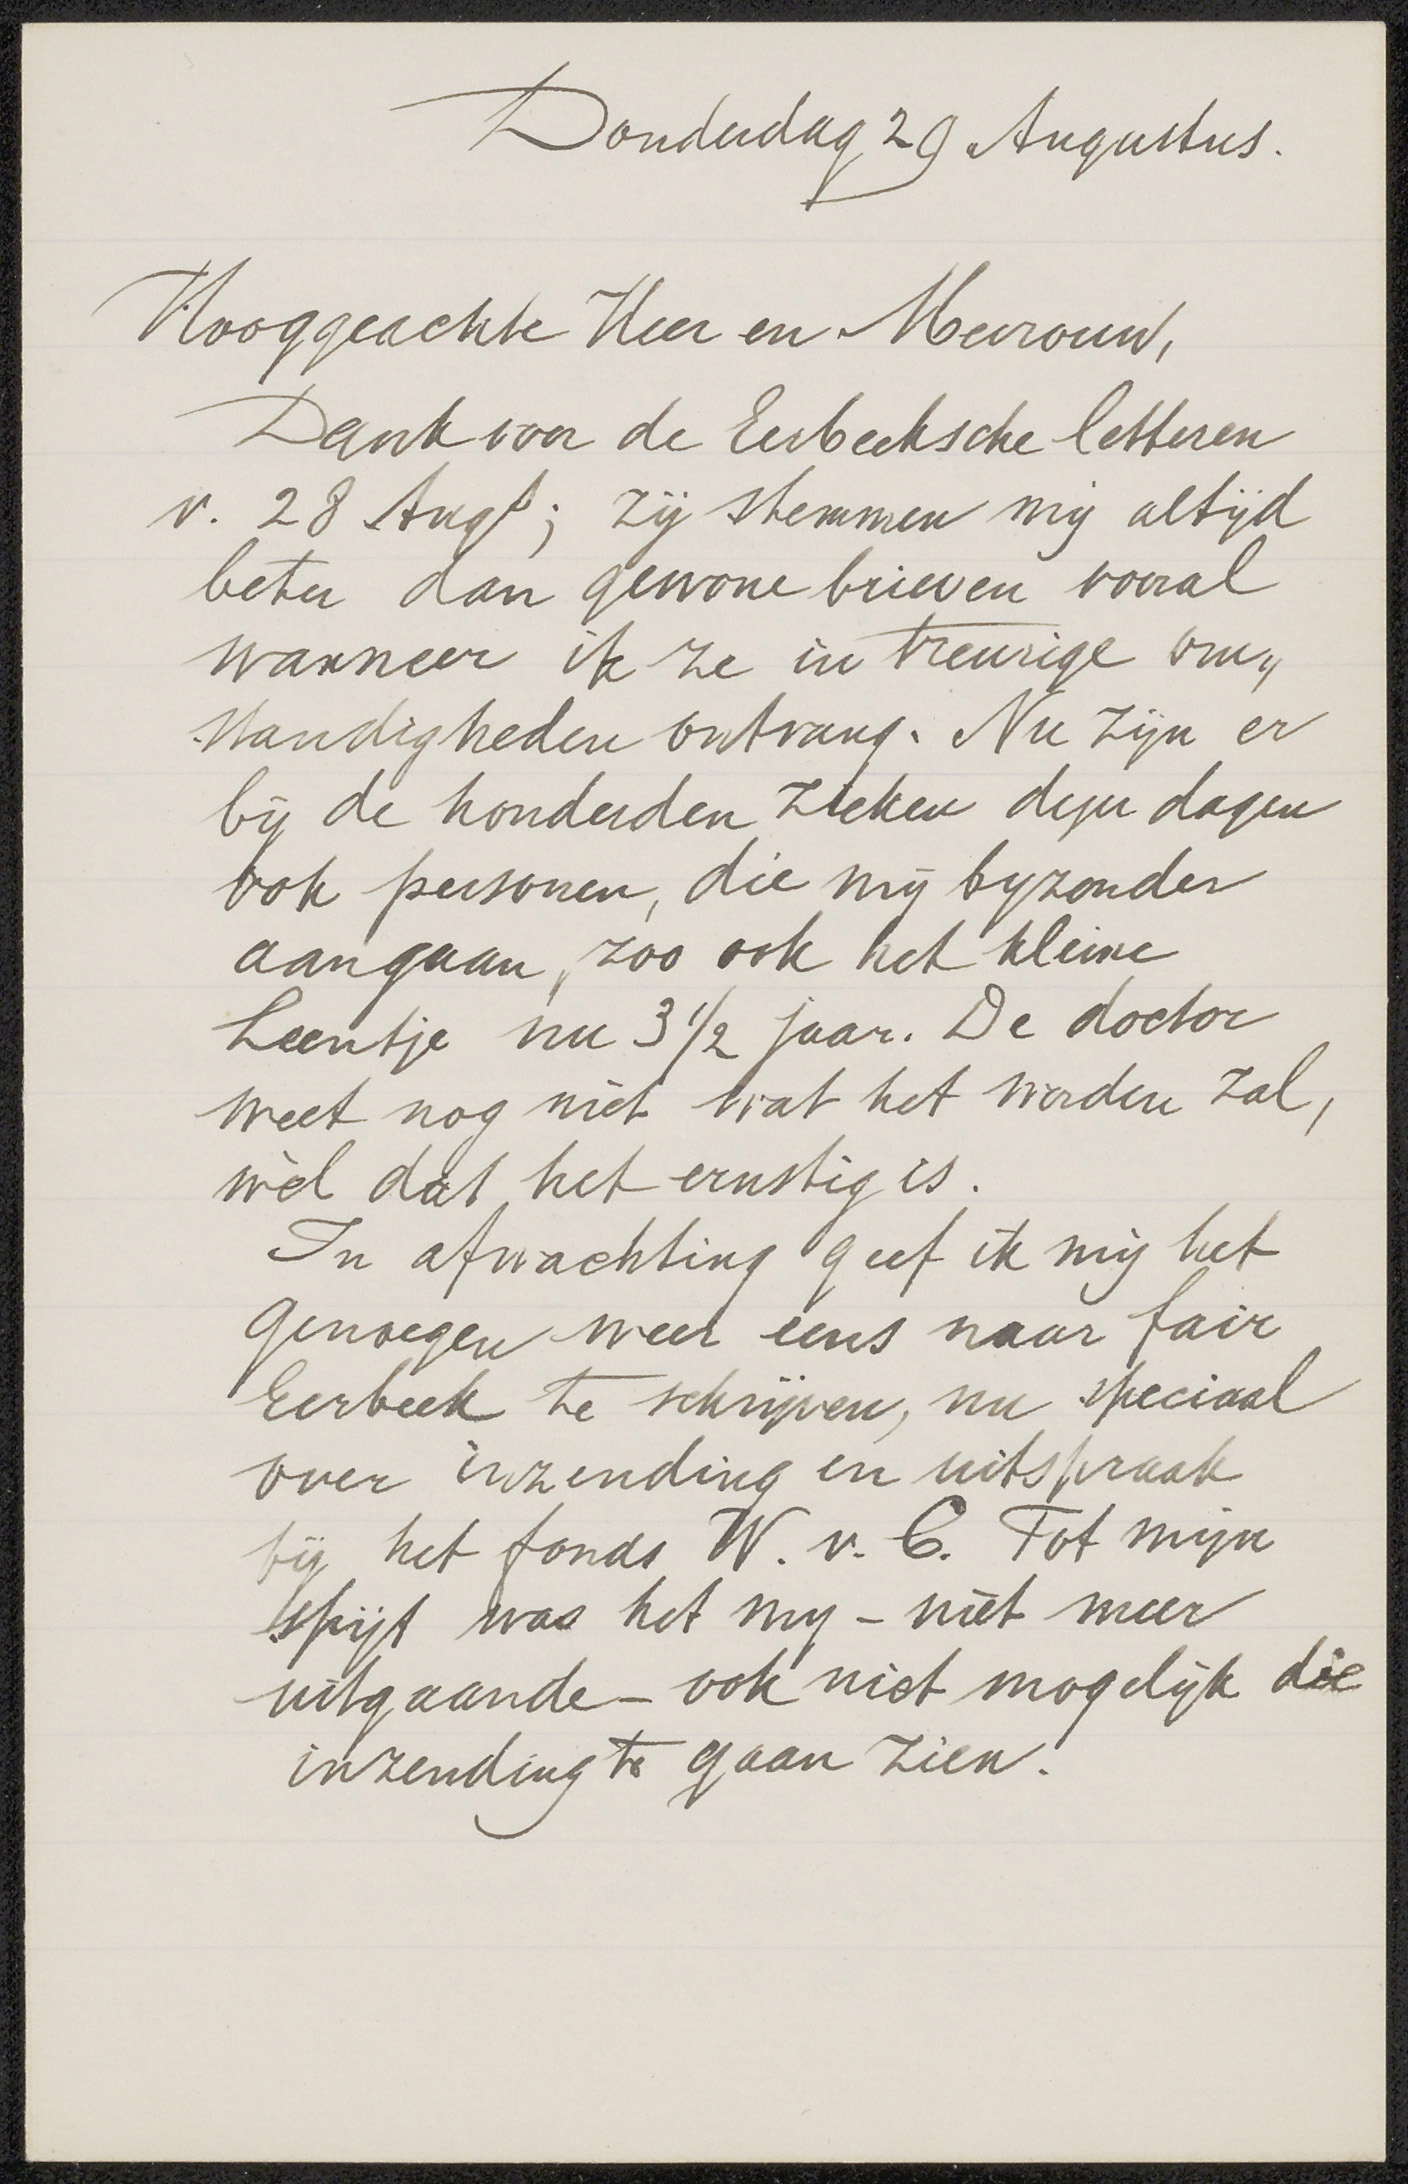 Donderdag 29 Augustus.
Hooggeachte Heer en Mevrouw,
Dank voor de Eerbeeksche letteren
v. 28 Augt; zij stemmen mij altijd
beter dan gewone brieven vooral
wanneer ik ze in treurige om„
standigheden ontvang. Nu zijn er
bij de honderden zieken dezer dagen
ook personen, die mij byzonder
aangaan, zoo ook het kleine
Leentje nu 3 1/2 jaar. De doctor
weet nog niet wat het worden zal,
wèl dat het ernstig is.
In afwachting geef ik mij het
genoegen weer eens naar fair
Eerbeek te schrijven, nu speciaal
over inzending en uitspraak
bij het fonds W. v. C. Tot mijn
spijt was het my – niet meer
uitgaande – ook niet mogelijk die
inzending te gaan zien.